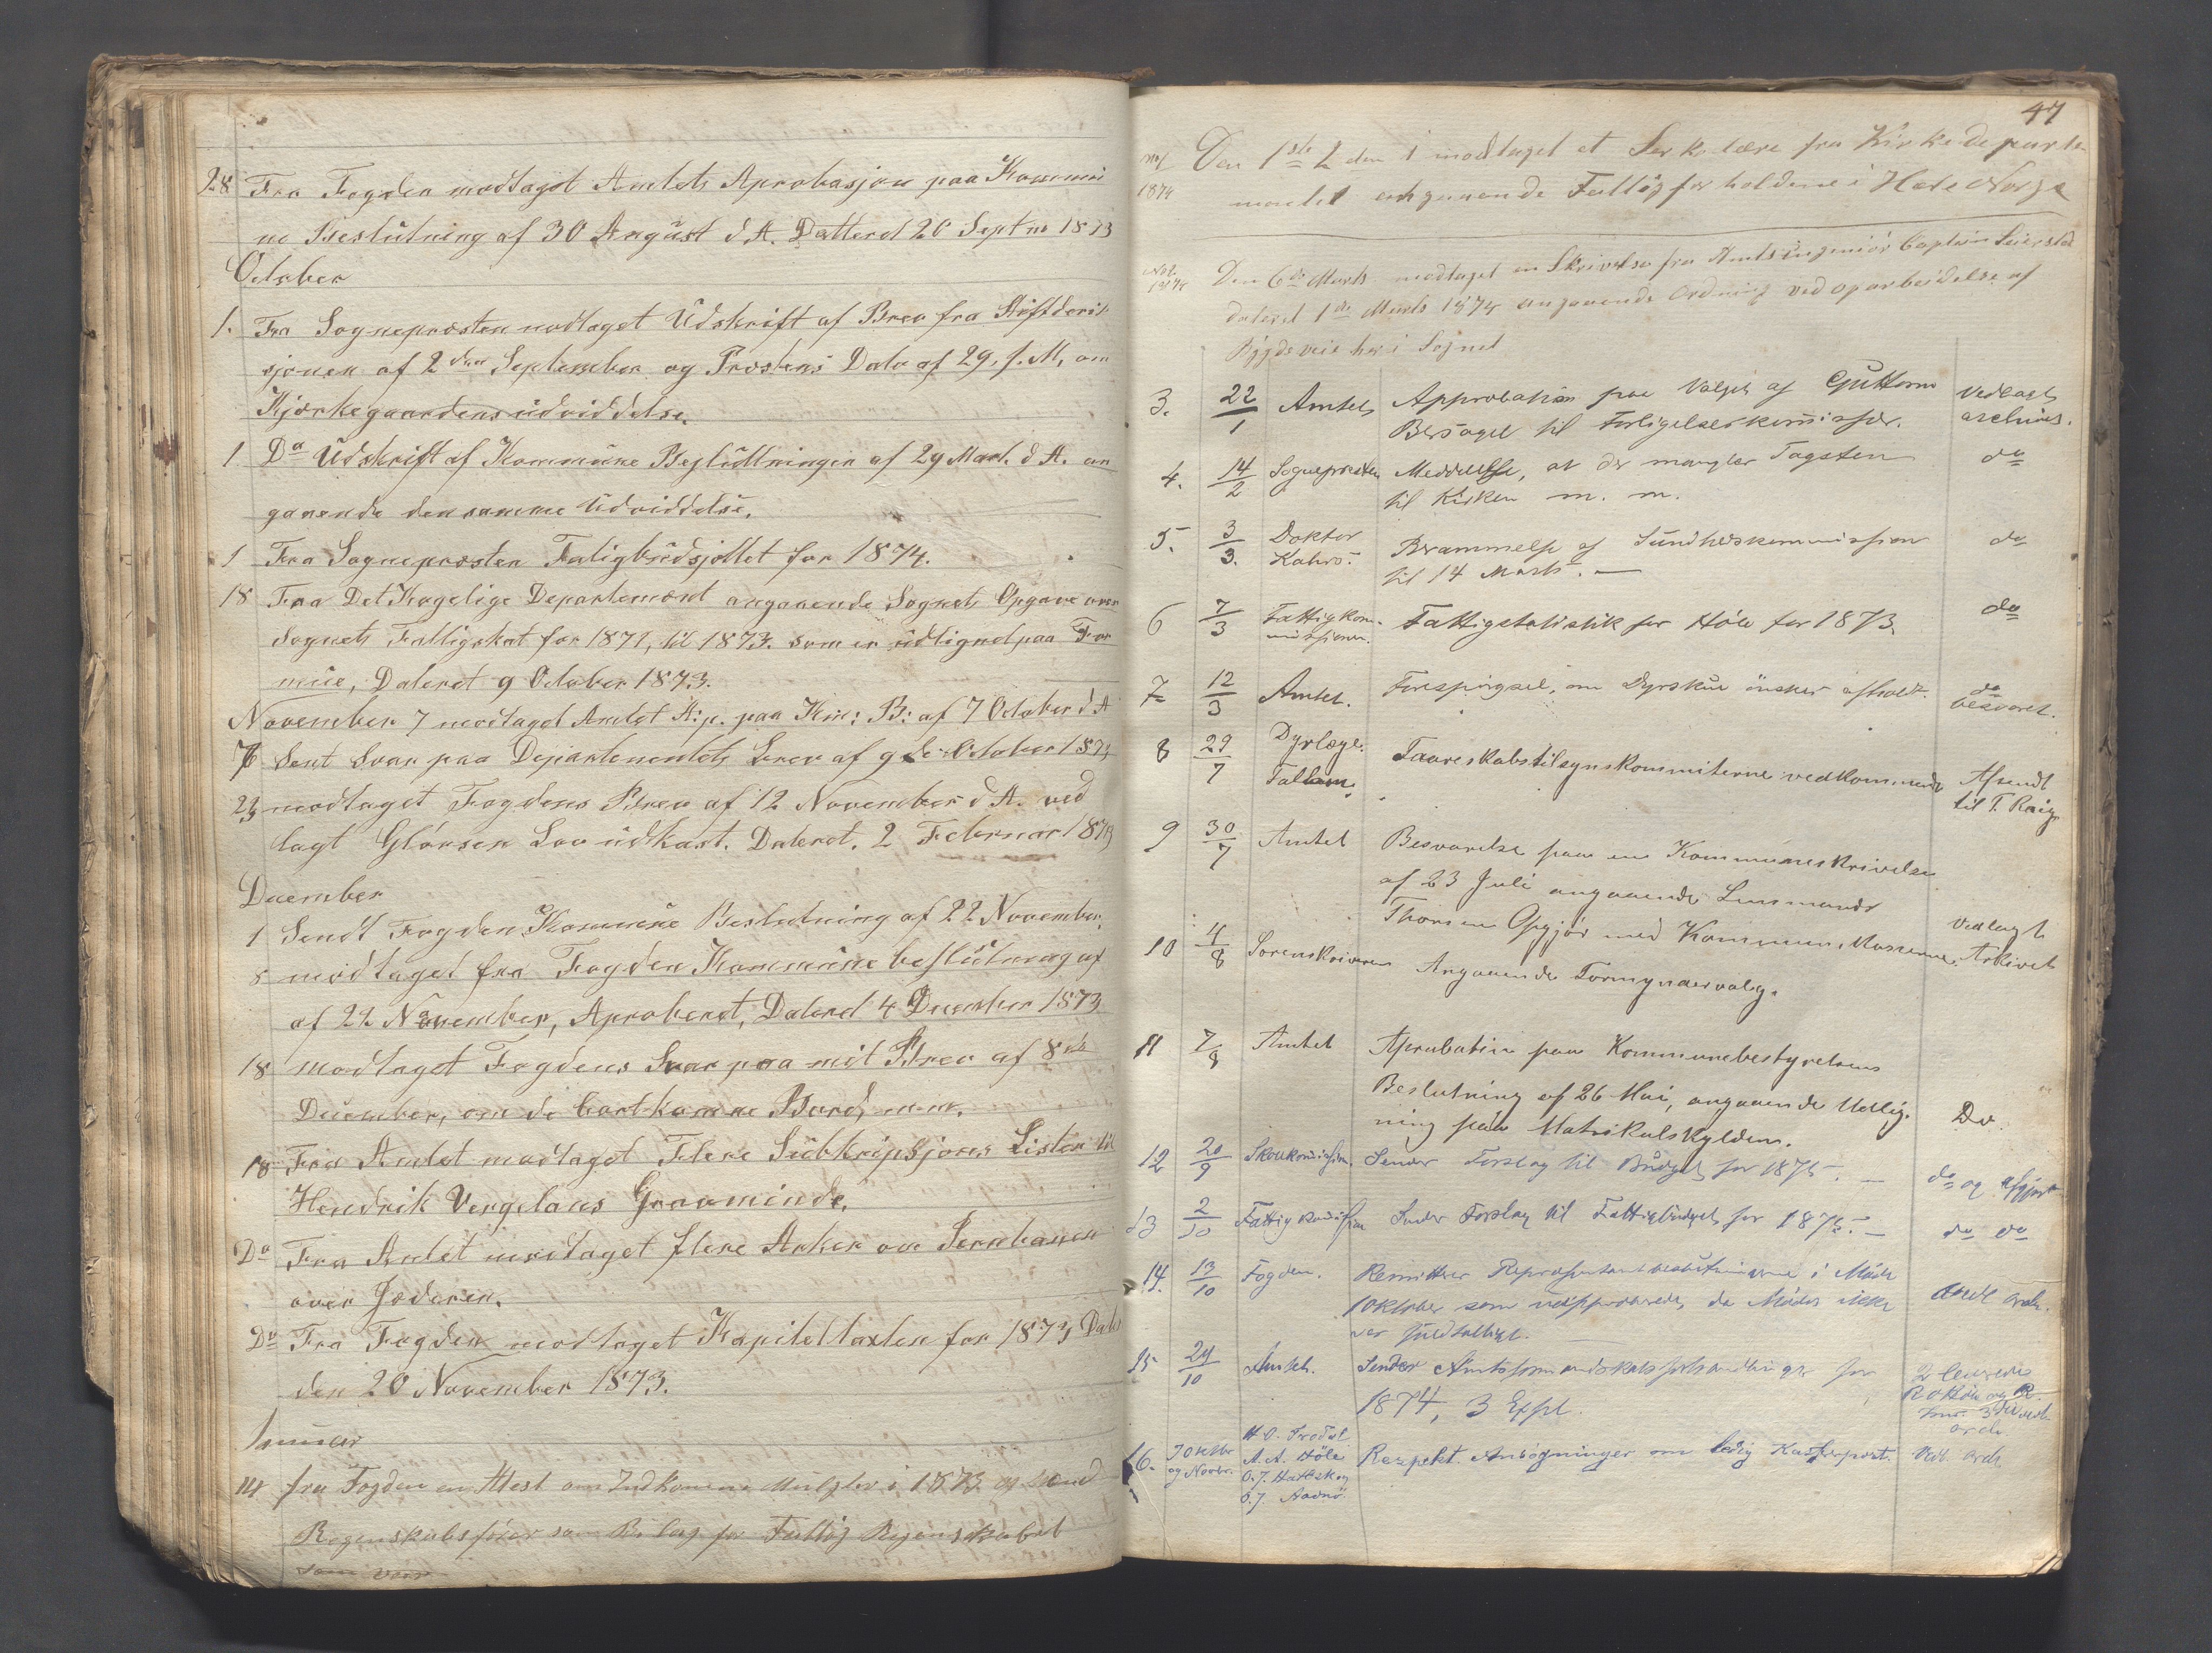 28 Fra Fogden modtaget Amtets Aprobasjon paa Kommu
ne Beslutning af 30 August d.A. Datterd 26 Septnr 1873
October
1. Fra Sognepresten modtaget Udskrift af Brev fra Stiftderik
sjonen af 2den September og Prostens Dato af 29. f. M, om
Kjærkegaardens udviddelse.
1 Do Udskrift af Kommune Beslüttningen af 29 Mart. d A. an
gaaende den samme Udviddelse.
1 Fra Sognepresten Fatigbüdsjottet for 1874.
18 Fra Det Kagelige Departement angaaende Sognets Opgave over
Sognets Fattigskat for 1871, til 1873. som er üdlignet paa For
müe, Dateret 9 October 1873.
November 7 modtaget Amtet A:p. paa Km: B: af 7 October d A
7 Sent Svar paa Departementets Brev af 9de October 1873
23 modtaget Fogdens Brev af 12 November d A. ved
lagt Lov üdkast. Dateret. 2 Februar 1873
December
1 Sendt Fogden Kommüne Beslutning af 22 November.
8 modtaget fra Fogden Kommüne beslütning af
af 22 November, Aproberet, Daterd 4 December 1873
18 modtaget Fogdens Svar paa mit Brev af 8de
December, om de bortkomne Bord m.m.
18 Fra Amtet modtaget Flere Sübkripsjons Lister til
Hendrik Vergelans Gravminde.
Do Fra Amtet modtaget flere Arker om Jernbanen
over Jæderen.
Do Fra Fogden modtaget Kapiteltaxten for 1873 Dat
den 20 November 1873.
Januar
14 fra Fogden en Attest om Indkomne Mülgter i 1873 og send
Regenskabsfører som Bilag for Fattig Regenskabet
som var
47
No 1
1874
Den 1ste 2 den 1 modtaget et Serkulære fra Kirkedeparte
mentet angaaende Fattigforholdene i Hele Norge
No 2
1874
Den 6te Marts modtaget en Skrivelse fra Amtsingeniør Captein Seiersted
dateret 1ste Marts 1874 angaaende Ordning ved oparbeidelse af
Bygdeveie her i Sognet
3. 22/1 Amtet Approbation paa Valget af Guttorm Vedlagt
Bersagel til Forligelseskomissær. archivet.
4. 14/2 Sognepresten Meddelelse, at der mangler Tagsten do
til Kirken m. m.
5. 3/3. Doktor Berammelse af Sundhedskommission do
Kahrs. til 14 Marts. —
6 7/3 Fattigkom- Fattigstatistik for Höle for 1873. do
missionen.
7 12/3 Amtet. Forespörgsel, om Dyrskue önskes afholdt. do
besvaret.
8 29/7 Dyrlæge Taareskabstilsynskommiterne vedkommende Afsendt
til T.
9 30/7 Amtet Besvarelse paa en Kommuneskrivelse
af 23 Juli angaaende Lensmand
Thorsen Opgjör med Kommunekasserne. Vedlagt
10 4/8 Sorenskriveren Angaaende Formyndervalg. Arkivet
11 7/8 Amtet Aprobation paa Kommunebestyrelsens
Beslutning af 26 Mai, angaaende Udlig-
ning paa Matrikulskylden. Do
12 20/9 Skolekomission. Sender Forslag til Budget for 1875. — do og afgjort
13 2/10 Fattigkomission Sender Forslag til Fattigbudget for 1875. — do do
14. 13/10 Fogden. Remitterer Repræsentantbeslutningerne i Möde
1 Oktober som uapproberede, da Mödet ikke vedl arch.
var fuldtalligt.
15 24/10 Amtet. Sender Amtsformandskabsforhandlinger for 2 leverede
1874, 3 Expl. 3die vedl.
arch.
16. I Oktbr og Novbr. A. A. Höle Respekt. Ansögninger om ledig Kassererpost. Vedl. arch
O. J.
O. J. Aadnö.